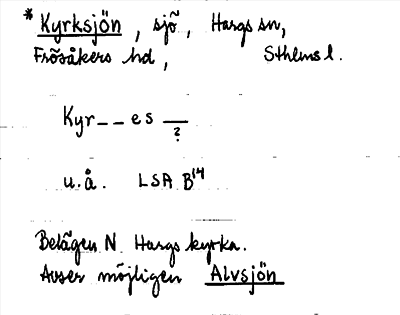 * Kyrksjön, sjö, Hargs sn,
Frösåkers hd, Sthlms l.
Kyr__es __
?
u.å. LSA B14
Belägen N Hargs kyrka.
Avser möjligen Alvsjön